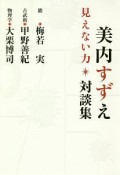 美内すずえ
見えない力✴対談集
能✴梅若 実
古武術✴甲野善紀
物理学✴大栗博司